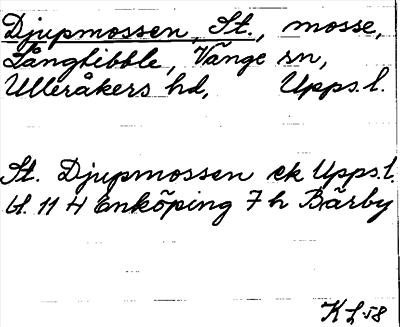 Djupmossen, St., mosse,
Långtibble, Vänge sn,
Ulleråkers hd, Upps.l.
St. Djupmossen ek Upps.l.
bl. 11 H Enköping 7h Bärby
KL 58